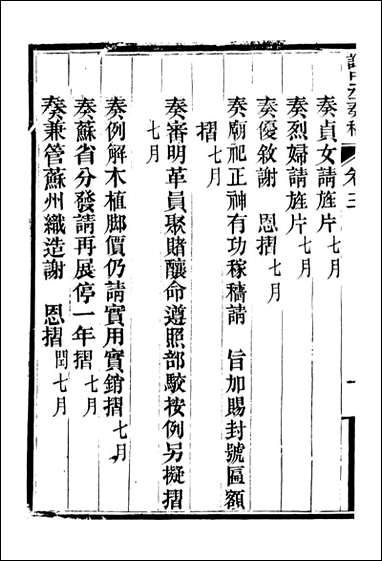 奏稿
卷三
一
奏貞女請旌片七月
奏烈婦請旌片七月
奏優敘謝　恩摺七月
奏廟祀正神有功稼穡請　旨加賜封號匾額
摺七月
奏審明革員聚賭釀命遵照部駁按例另擬摺
七月
奏例解木植脚價仍請實用實銷摺七月
奏蘇省分發請再展停一年摺七月
奏兼管蘇州織造謝　恩摺閏七月